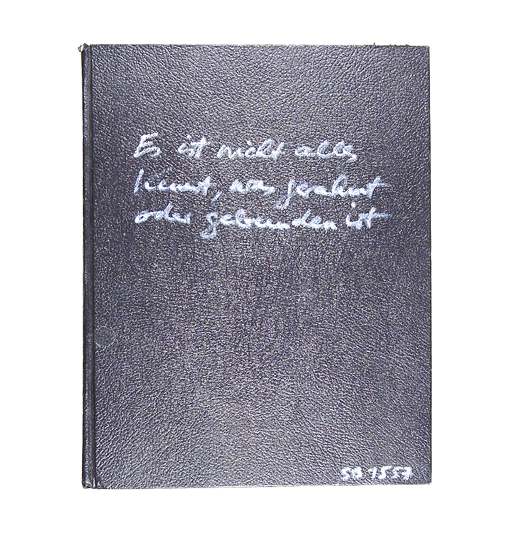 Es ist nicht alles
kunst, was gerahmt
oder gebunden ist
SB 1557